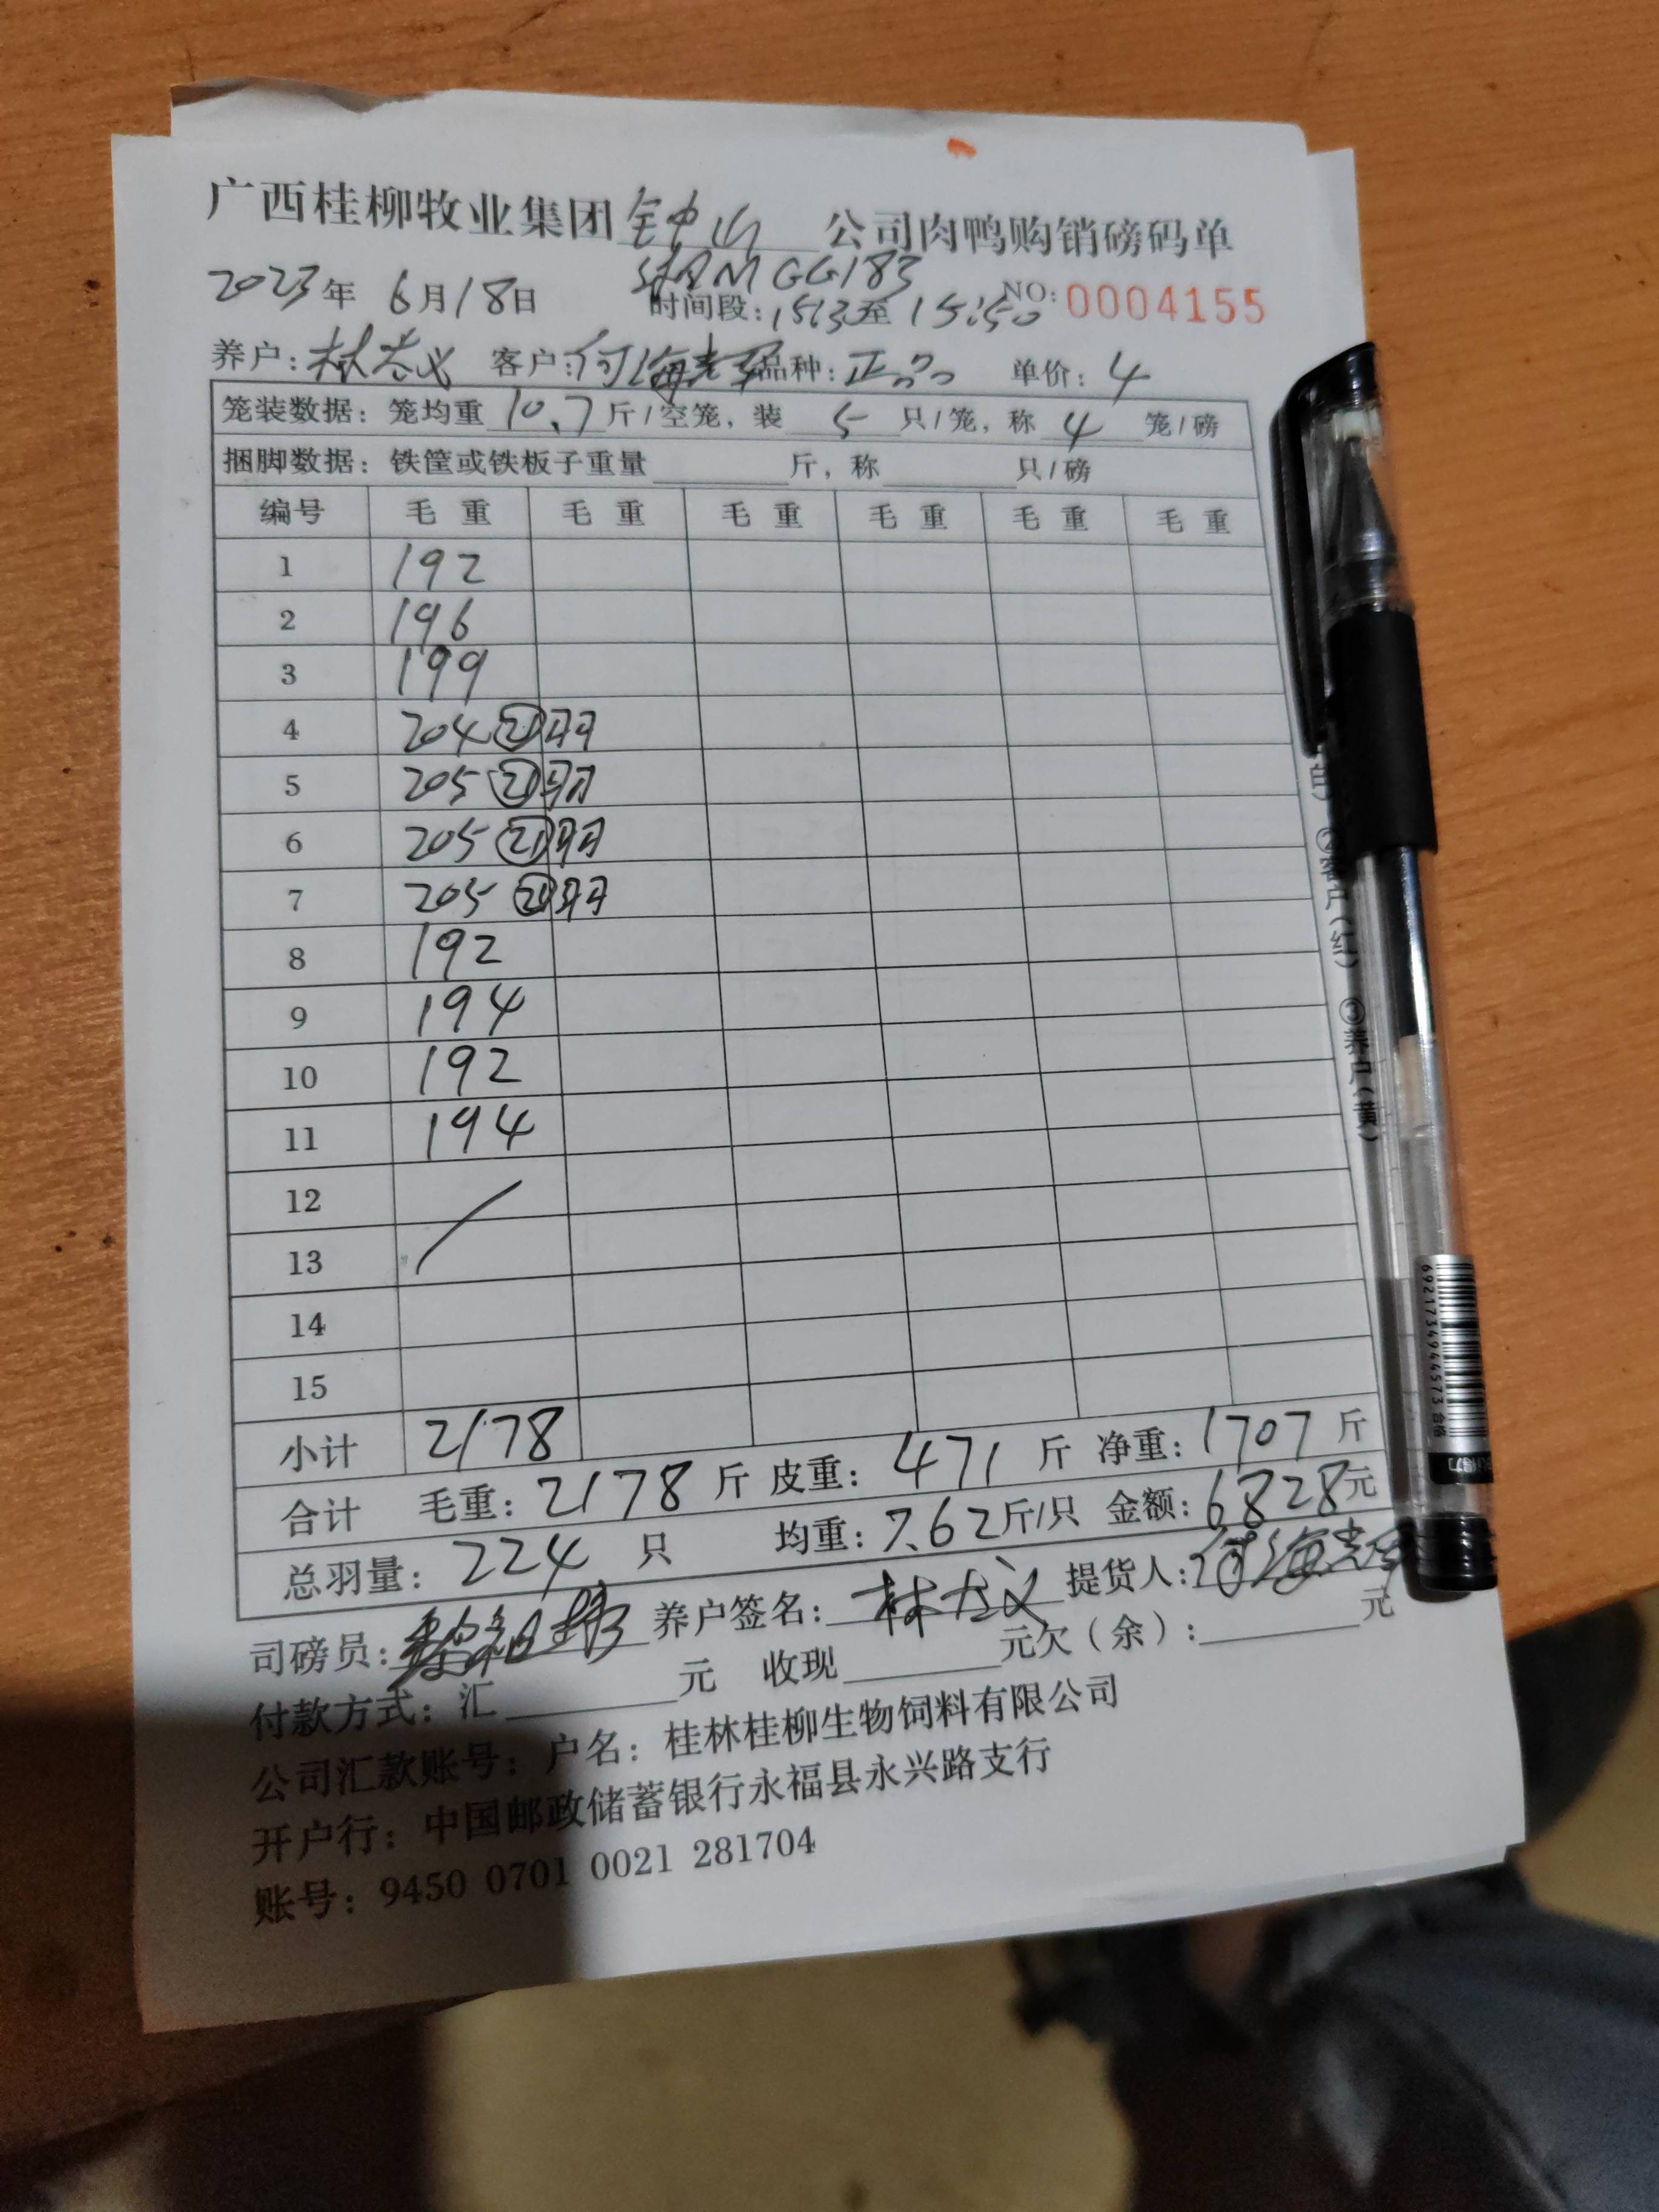 广西桂柳牧业集团钟山公司肉鸭购销磅码单
2023年 6月18日
MGG183
时间段:15:30至15:50 NO:0004155
养户:林 客户:何海 品种:正品 单价:4
笼装数据:笼均重10.7斤/空笼,装5只/笼,称4笼/磅
捆脚数据:铁筐或铁板子重量 斤,称 只/磅
编号 毛重 毛重 毛重 毛重 毛重 毛重
1 192
2 196
3 199
4 204 ㉑羽
5 205 ㉑羽
6 205 ㉑羽
7 205 ㉑羽
8 192
9 194
10 192
11 194
12
13
14
15
小计 2178
合计 毛重:2178斤 皮重:471斤 净重:1707斤
总羽量:224只 均重:7.62斤/只 金额:6828元
司磅员: 养户签名:林 义 提货人:何海
付款方式:汇 元 收现 元欠(余): 元
公司汇款账号:户名:桂林桂柳生物饲料有限公司
开户行:中国邮政储蓄银行永福县永兴路支行
账号:9450 0701 0021 281704
②客户(红) ③养户(黄)
6921734944573 合格